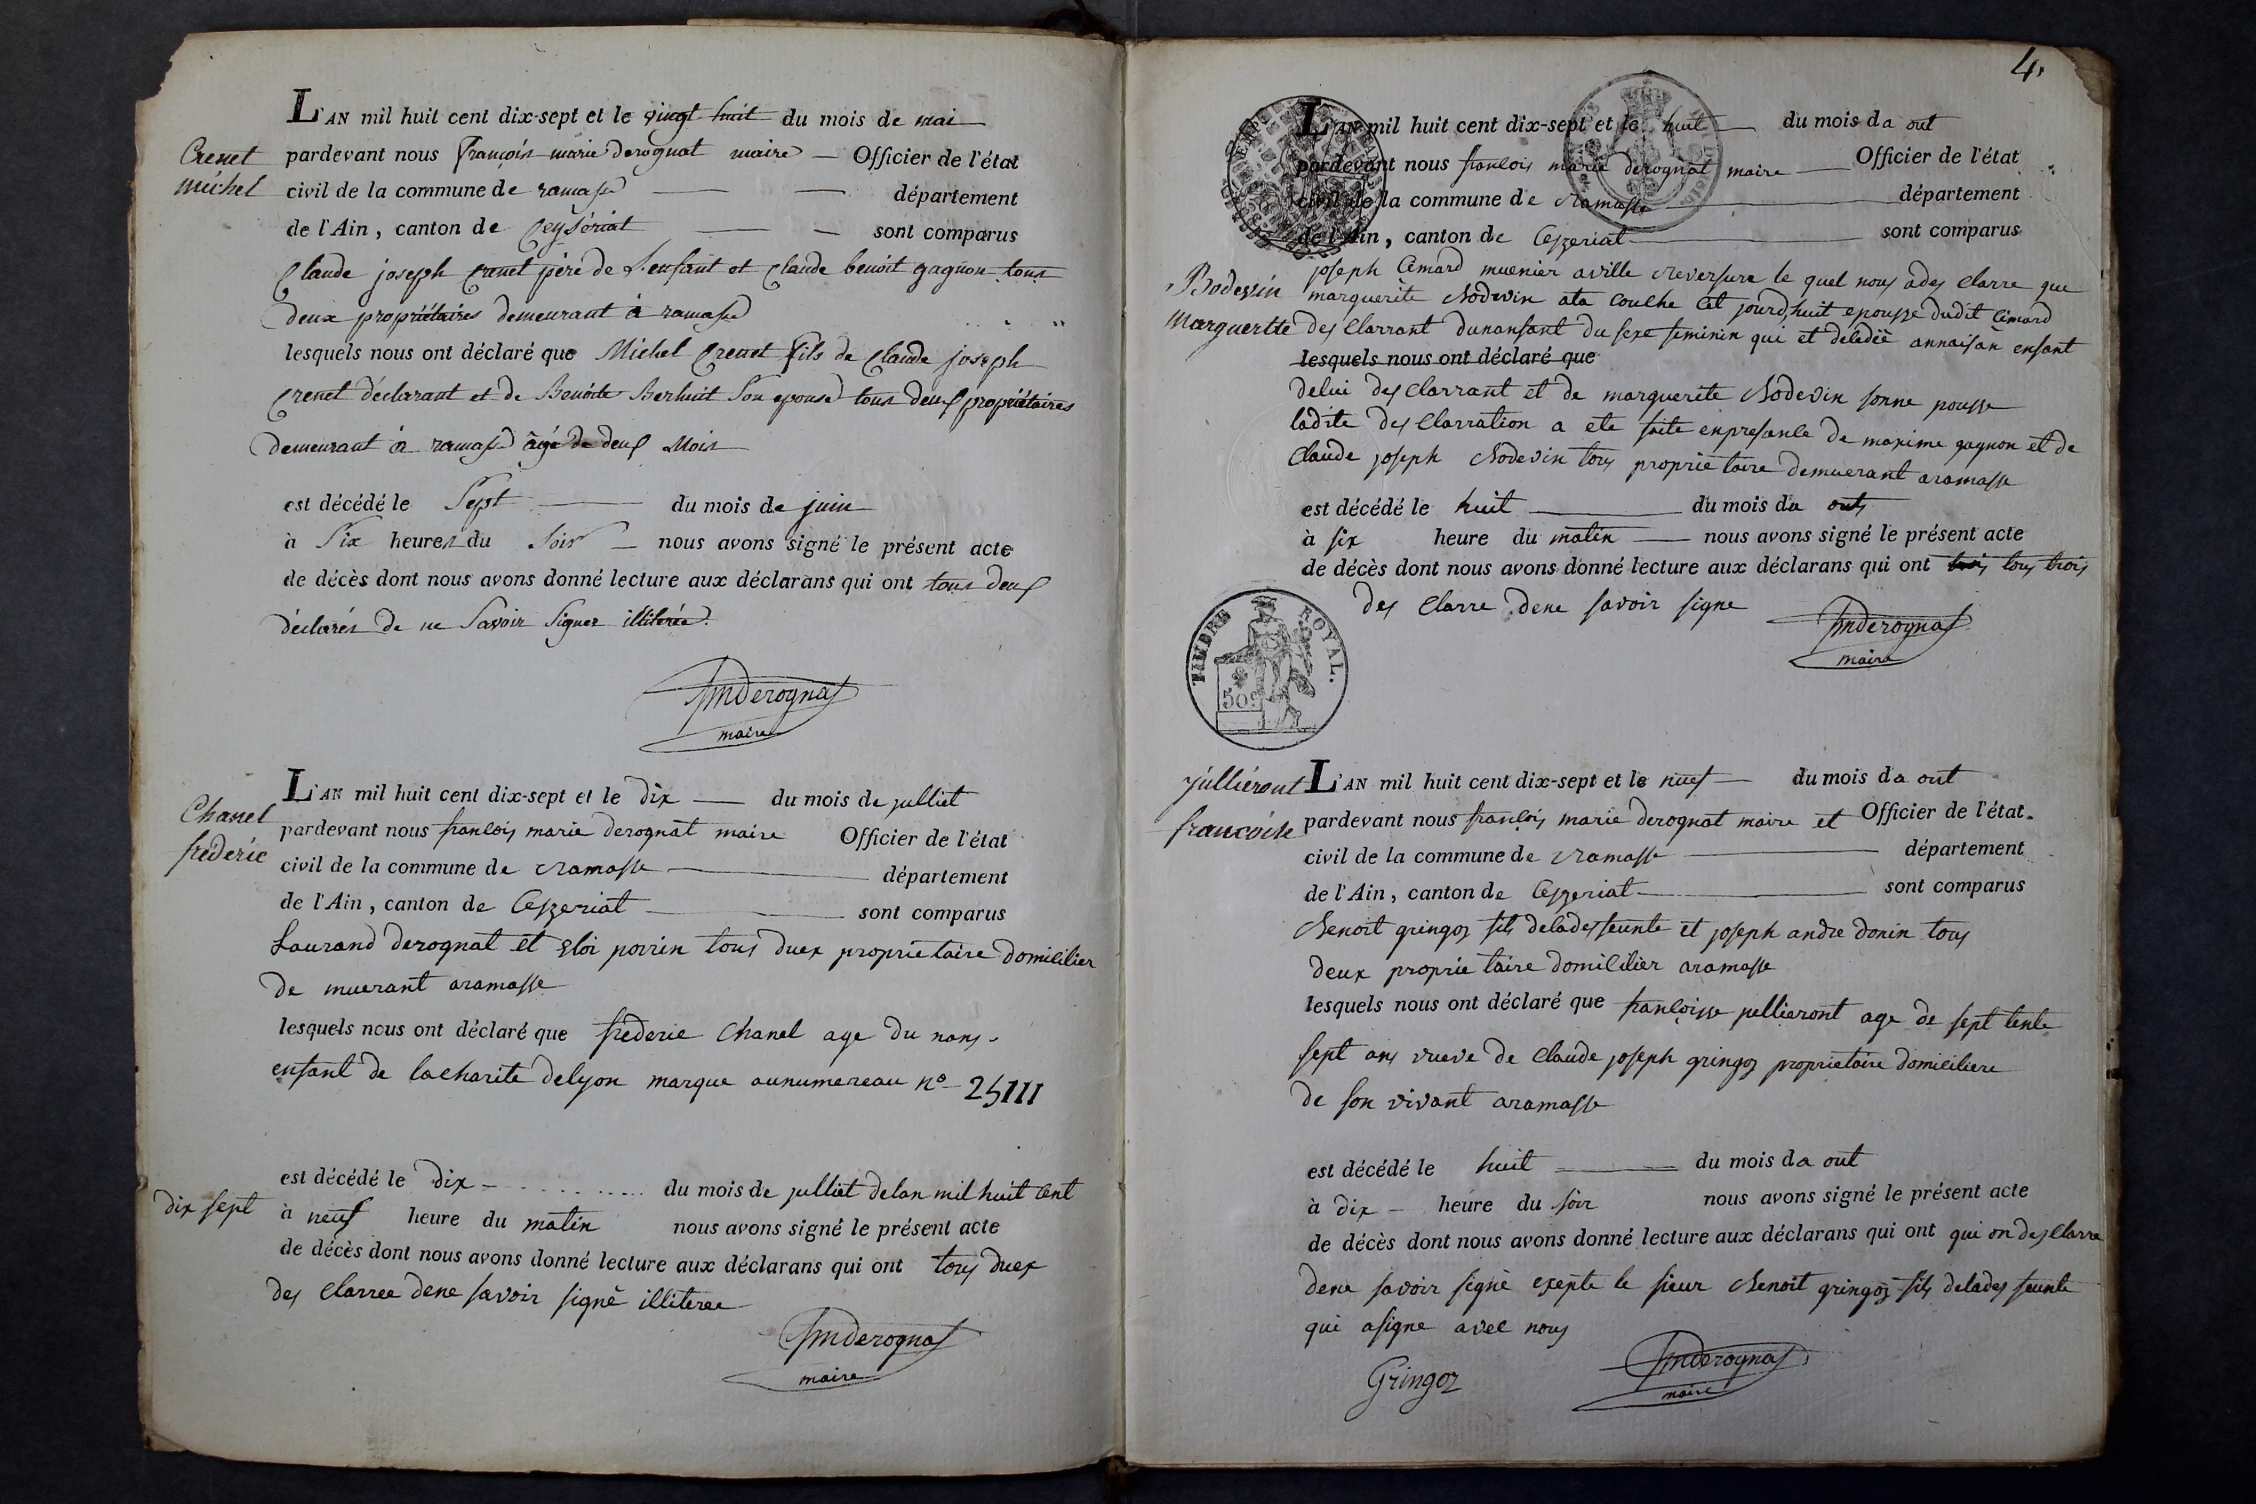 Crenet
michel
L'AN mil huit cent dix-sept et le vingt huit du mois de mai
pardevant nous françois marie derognat maire Officier de l'état
civil de la commune de ramasse département
de l'Ain, canton de Ceyseriat sont comparus
Claude joseph Crenet père de L'enfant et Claude benoit gagnon tous
deux propriétaires demeurant à ramasse
lesquels nous ont déclaré que Michel Crenet fils de Claude joseph
Crenet déclarant et de Benoite Son epouse tous deux propriétaires
demeurant à ramasse âgé de deux Mois
est décédé le Sept du mois de juin
à Six heures du Soir nous avons signé le présent acte
de décès dont nous avons donné lecture aux déclarans qui ont tous deux
déclarés de ne Savoir Signer illiterée.
fmderognat
maire
Chanel
frederic
L'AN mil huit cent dix-sept et le dix du mois de julliet
pardevant nous francois marie derognat maire Officier de l'état
civil de la commune de ramasse département
de l'Ain, canton de Cezeriat sont comparus
Laurand derognat et eloi porrin tous duex proprietaire domicilier
de muerant aramasse
lesquels nous ont déclaré que frederic Chanel age du nans
enfant de lacharite delyon marque aunumereau n° 25111
est décédé le dix du mois de julliet delan mil huit cent
dix sept
à neuf heure du matin nous avons signé le présent acte
de décès dont nous avons donné lecture aux déclarans qui ont tous duex
des clarree dene savoir signé illiteree
fmderognat
maire
4.
L'AN mil huit cent dix-sept et le huit du mois da out
pardevant nous francois marie derognat maire Officier de l'état
civil de la commune de ramasse département
de l'Ain, canton de Cezeriat sont comparus
Bodevin
Marguerite
joseph Cimard muenier aville reversure le quel nous a des clarre que
marguerite Bodevin ata couche cet jourd,huit epousse dudit Cimard
des clarrant dunansant du sexe feminin qui et deledië annaisan ensant
lesquels nous ont déclaré que
delui des clarrant et de marguerite Bodevin sonne pousse
ladite des clarration a ete faite enpresance de maxime gagnon et de
Claude joseph Bodevin tous proprietaire demuerant aramasse
est décédé le huit du mois da out
à six heure du matin nous avons signé le présent acte
de décès dont nous avons donné lecture aux déclarans qui ont trois tous trois
des clarre dene savoir signe
fmderognat
maire
TIMBRE ROYAL.
50c
julliéront
francoise
L'AN mil huit cent dix-sept et le nuef du mois da out
pardevant nous françois marie derognat maire et Officier de l'état
civil de la commune de ramasse département
de l'Ain, canton de Cezeriat sont comparus
Benoit gringoz fils delades feunte et joseph andre donin tous
deux proprietaire domicilier aramasse
lesquels nous ont déclaré que françoisse jullieront age de sept tente
sept ans vueve de Claude joseph gringoz proprietaire domiciliere
de son vivant aramasse
est décédé le huit du mois da out
à dix heure du soir nous avons signé le présent acte
de décès dont nous avons donné lecture aux déclarans qui ont qui on des clarre
dene savoir signe exepte le sieur Benoit gringoz fils delades feunte
qui asigne avec nous
Gringoz
fmderognat
maire